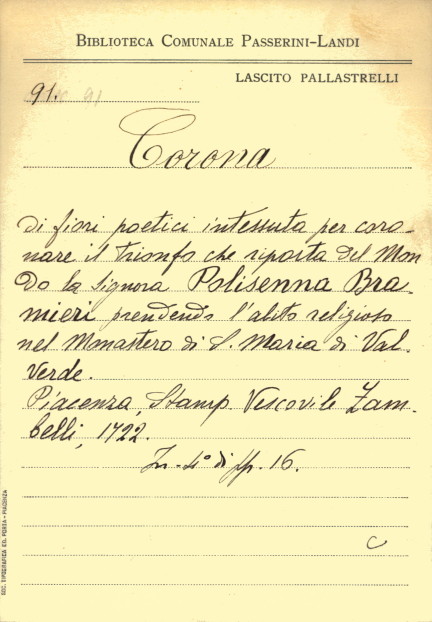 BIBLIOTECA COMUNALE PASSERINI-LANDI
LASCITO PALLASTRELLI
91.
Corona
di fiori poetici intessuta per coro-
nare il trionfo che riporta del Mon
do la signora Polisenna Bra-
mieri prendendo l'abito religioso
nel Monastero di S. Maria di Val-
verde.
Piacenza, Stamp Vescovile Zam-
belli, 1722.
In-4° di pp. 16.
C
SOC. TIPOGRAFICA ED. PORTA - PIACENZA